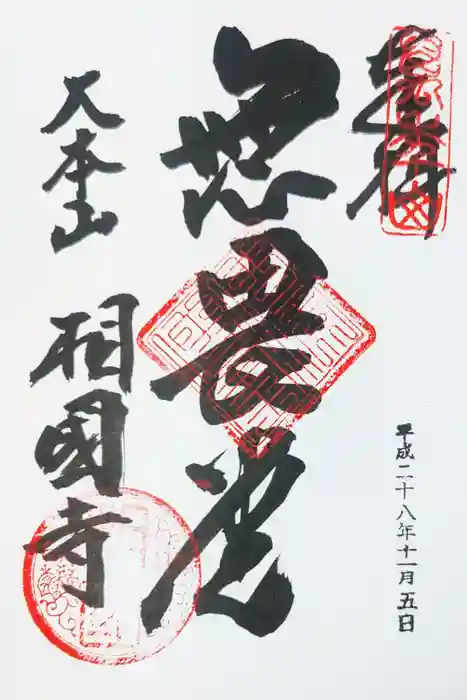 奉拝
無畏堂
平成二十八年十一月五日
大本山
相國寺